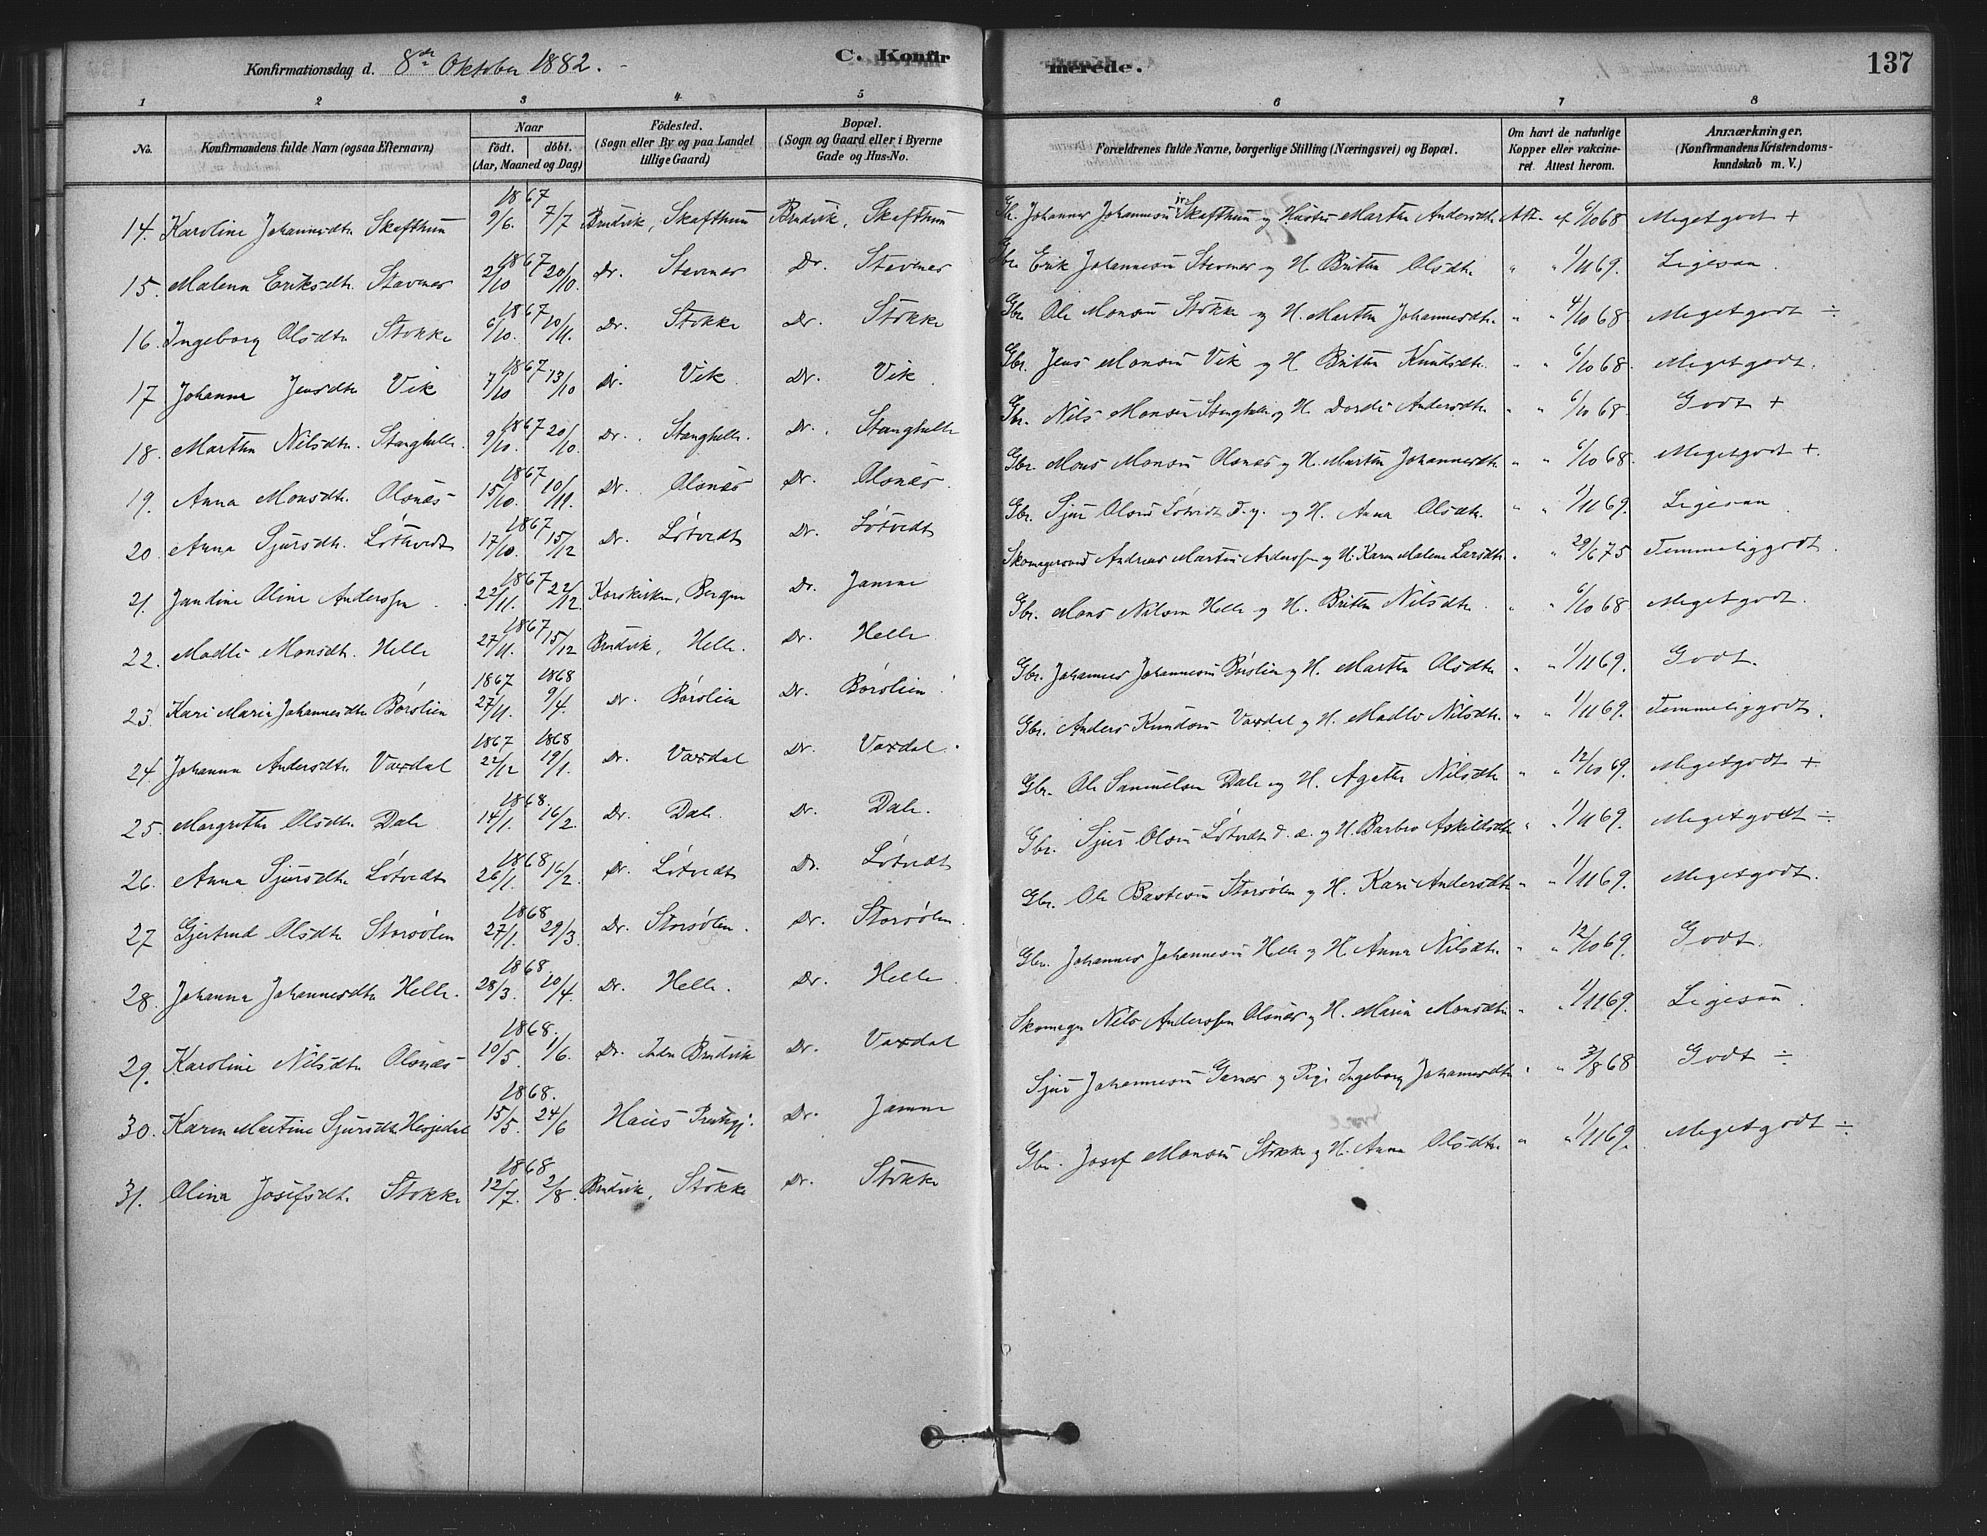 Konfirmationsdag d. 8de Oktober 1882. C. Konfirmerede. 137
1 2 3 4 5 6 7 8
No. Konfirmandens fulde Navn (ogsaa Efternavn) Naar født. døbt. (Aar, Maaned og Dag) Födested. (Sogn eller By og paa Landet tillige Gaard) Bopæl. (Sogn og Gaard eller i Byerne Gade og Hus-No. Forældrenes fulde Navne, borgerlige Stilling (Næringsvei) og Bopæl. Om havt de naturlige Kopper eller vakcineret. Attest herom. Anmærkninger. (Konfirmandens Kristendomskundskab m. V.)
14. Karoline Johannesdtr Skafthun 1867 9/6. 7/7 Brudvik, Skafthun Brudvik, Skafthun Gbr. Johannes Johannesen Skafthun og Hustru Martha Andersdtr Att. af 6/10 68 Megetgodt +
15. Malena Eriksdtr. Stavenes 1867 2/10 20/10. Do. Stavenes Do. Stavenes Gbr Erik Johannesen Stavenes og H. Britha Olsdtr " " 1/11 69. Ligesaa.
16. Ingeborg Olsdtr Stokke 1867 6/10. 10/11. Do. Stokke Do. Stokke Gbr Ole Monsen Stokke og H. Martha Johannesdtr. " " 4/10 68 Megetgodt ÷
17 Johanna Jensdtr Vik 1867 7/10 13/10 Do. Vik Do. Vik Gbr. Jens Monsen Vik og H. Britha Knutsdtr. " " 6/10 68. Megetgodt.
18. Martha Nilsdtr. Stanghelle. 1867 9/10. 20/10. Do. Stanghelle. Do. Stanghelle Gbr. Nils Monsen Stanghelle og H. Dordei Andersdtr " " 6/10 68. Godt +
19. Anna Monsdtr. Olsnæs 1867 15/10. 10/11. Do. Olsnæs Do. Olsnæs. Gbr Mons Monsen Olsnæs og H. Martha Johannesdtr. " " 6/10 68. Megetgodt +.
20. Anna Sjursdtr. Løthvedt 1867 17/10. 15/12 Do. Løtvedt Do. Løtvedt Gbr. Sjur Olsen Løtvedt d. y. og H. Anna Olsdtr. " " 1/11 69. Ligesaa
21. Jandine Oline Anderssen. 1867 22/11. 22/12. Korskirken, Bergen Do. Jamne Skomagersvend Andreas Martin Anderssen og H. Karen Malene Larsdtr " " 29/6 75 Temmeliggodt.
22. Madli Monsdtr. Helle 1867 27/11. 15/12 Brudvik, Helle. Do. Helle. Gbr. Mons Nilsen Helle og H. Britha Nilsdtr. " " 6/10 68 Megetgodt.
23. Kari Maria Johannesdtr Børslien 1867 27/11. 1868 9/4. Do. Børslien Do. Børslien Gbr. Johannes Johannesen Børslien og H. Martha Olsdtr " " 1/11 69. Godt.
24. Johanna Andersdtr Vaxdal 1867 22/12 1868 19/1. Do. Vaxdal Do. Vaxdal. Gbr. Anders Knudsen Vaxdal og H. Madle Nilsdtr. " " 1/11 69. Temmeliggodt.
25. Margretha Olsdtr Dale 1868. 14/1. 16/2. Do. Dale. Do. Dale. Gbr. Ole Samuelsen Dale og H. Agatha Nilsdtr " " 12/10 69. Megetgodt +
26. Anna Sjursdtr Løtvedt 1868 26/1. 16/2. Do. Løtvedt Do. Løtvedt Gbr. Sjur Olsen Løtvedt d. æ. og H. Barbro Askildsdtr " " 1/11 69. Megetgodt ÷
27 Gjertrud Olsdtr Storsølen 1868 27/1. 29/3. Do. Storsølen. Do. Storsølen. Gbr. Ole Bastesen Storsølen og H. Kari Andersdtr " " 1/11 69. Megetgodt.
28. Johanna Johannesdtr Helle. 1868. 28/3. 20/4. Do. Helle. Do. Helle Gbr. Johannes Johannesen Helle og H. Anna Nilsdtr. " " 12/10 69. Godt.
29. Karoline Nilsdtr Olsnæs 1868. 10/5. 1/6. Do. Indre Brudvik Do. Vaxdal Skomager Nils Anderssen Olsnæs og H. Maria Monsdtr " " 1/11 69. Ligesaa.
30. Karen Martine Sjursdtr Hesjedal 1868. 15/5. 24/6 Haus Præstegj. Do. Jamne Sjur Johannesen Garnes og Pige Ingeborg Johannesdtr " " 3/8 68 Godt ÷
31. Olina Josefsdtr. Stokke 1868 12/7. 2/8. Brudvik, Stokke Do. Stokke Gbr. Josef Monsen Stokke og H. Anna Olsdtr " " 1/11 69. Megetgodt ÷